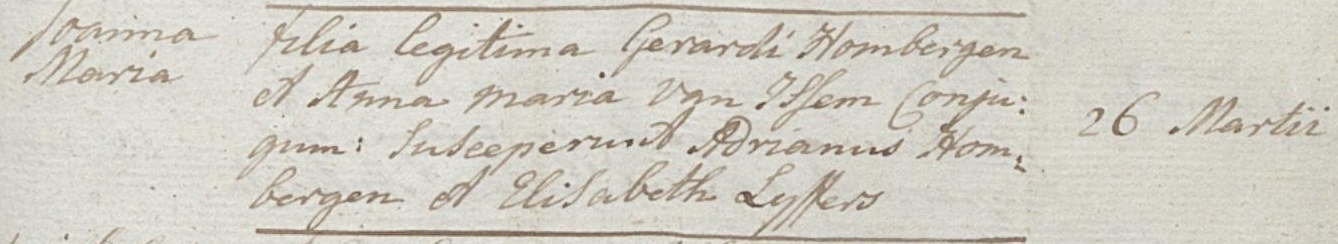 Joanna
Maria
filia legitima Gerardi Hombergen
et Anna maria Van Issem Conju:
gum: Susceperunt Adrianus Hom:
bergen et Elisabeth Lyffers
26 Martii